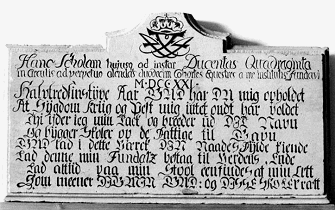 Hanc Scholam hujus ad instar Ducentas Quadraginta
in circulis ad perpetuo alendas duodecim Cohortes equestres a me institutis Fundavi
Halvtredsindstyve Aar GUD har DU mig opholdt
At Sygdom Krig og Pest mig intet ondt har voldt
Thi yder jeg min Tack og breeder ud DIT Navn
Og bygger Skoler op de Fattige til Gavn
GUD lad i dette Værck DIN Naades Fylde kiende
Lad denne min Fundatz bestaa til Verdens Ende
Lad altid paa min Stool een findes af min Æt
Som meener DIG MIN GUD og DISSE SKOLER rætt